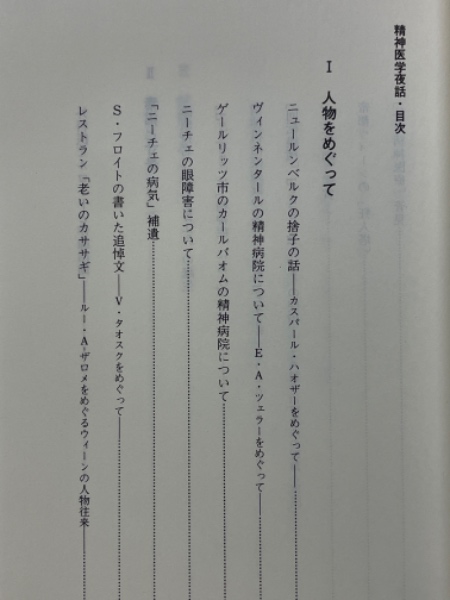 精神医学夜話・目次
Ⅰ 人物をめぐって
ニュールンベルクの捨子の話――カスパール・ハオザーをめぐって――
ヴィンネンタールの精神病院について――E・A・ツェラーをめぐって――
ゲールリッツ市のカールバオムの精神病院について
ニーチェの眼障害について
「ニーチェの病気」補遺
S・フロイトの書いた追悼文――V・タオスクをめぐって――
レストラン「老いのカササギ」――ルー・A-ザロメをめぐるウィーンの人物往来――